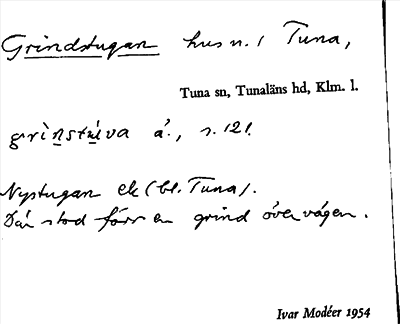 Grindstugan hus n. i Tuna,
Tuna sn, Tunaläns hd, Klm. l.
grìnstúva å., s. 121.
Nystugan ek (bl. Tuna).
Där stod förr en grind över vägen.
Ivar Modéer 1954